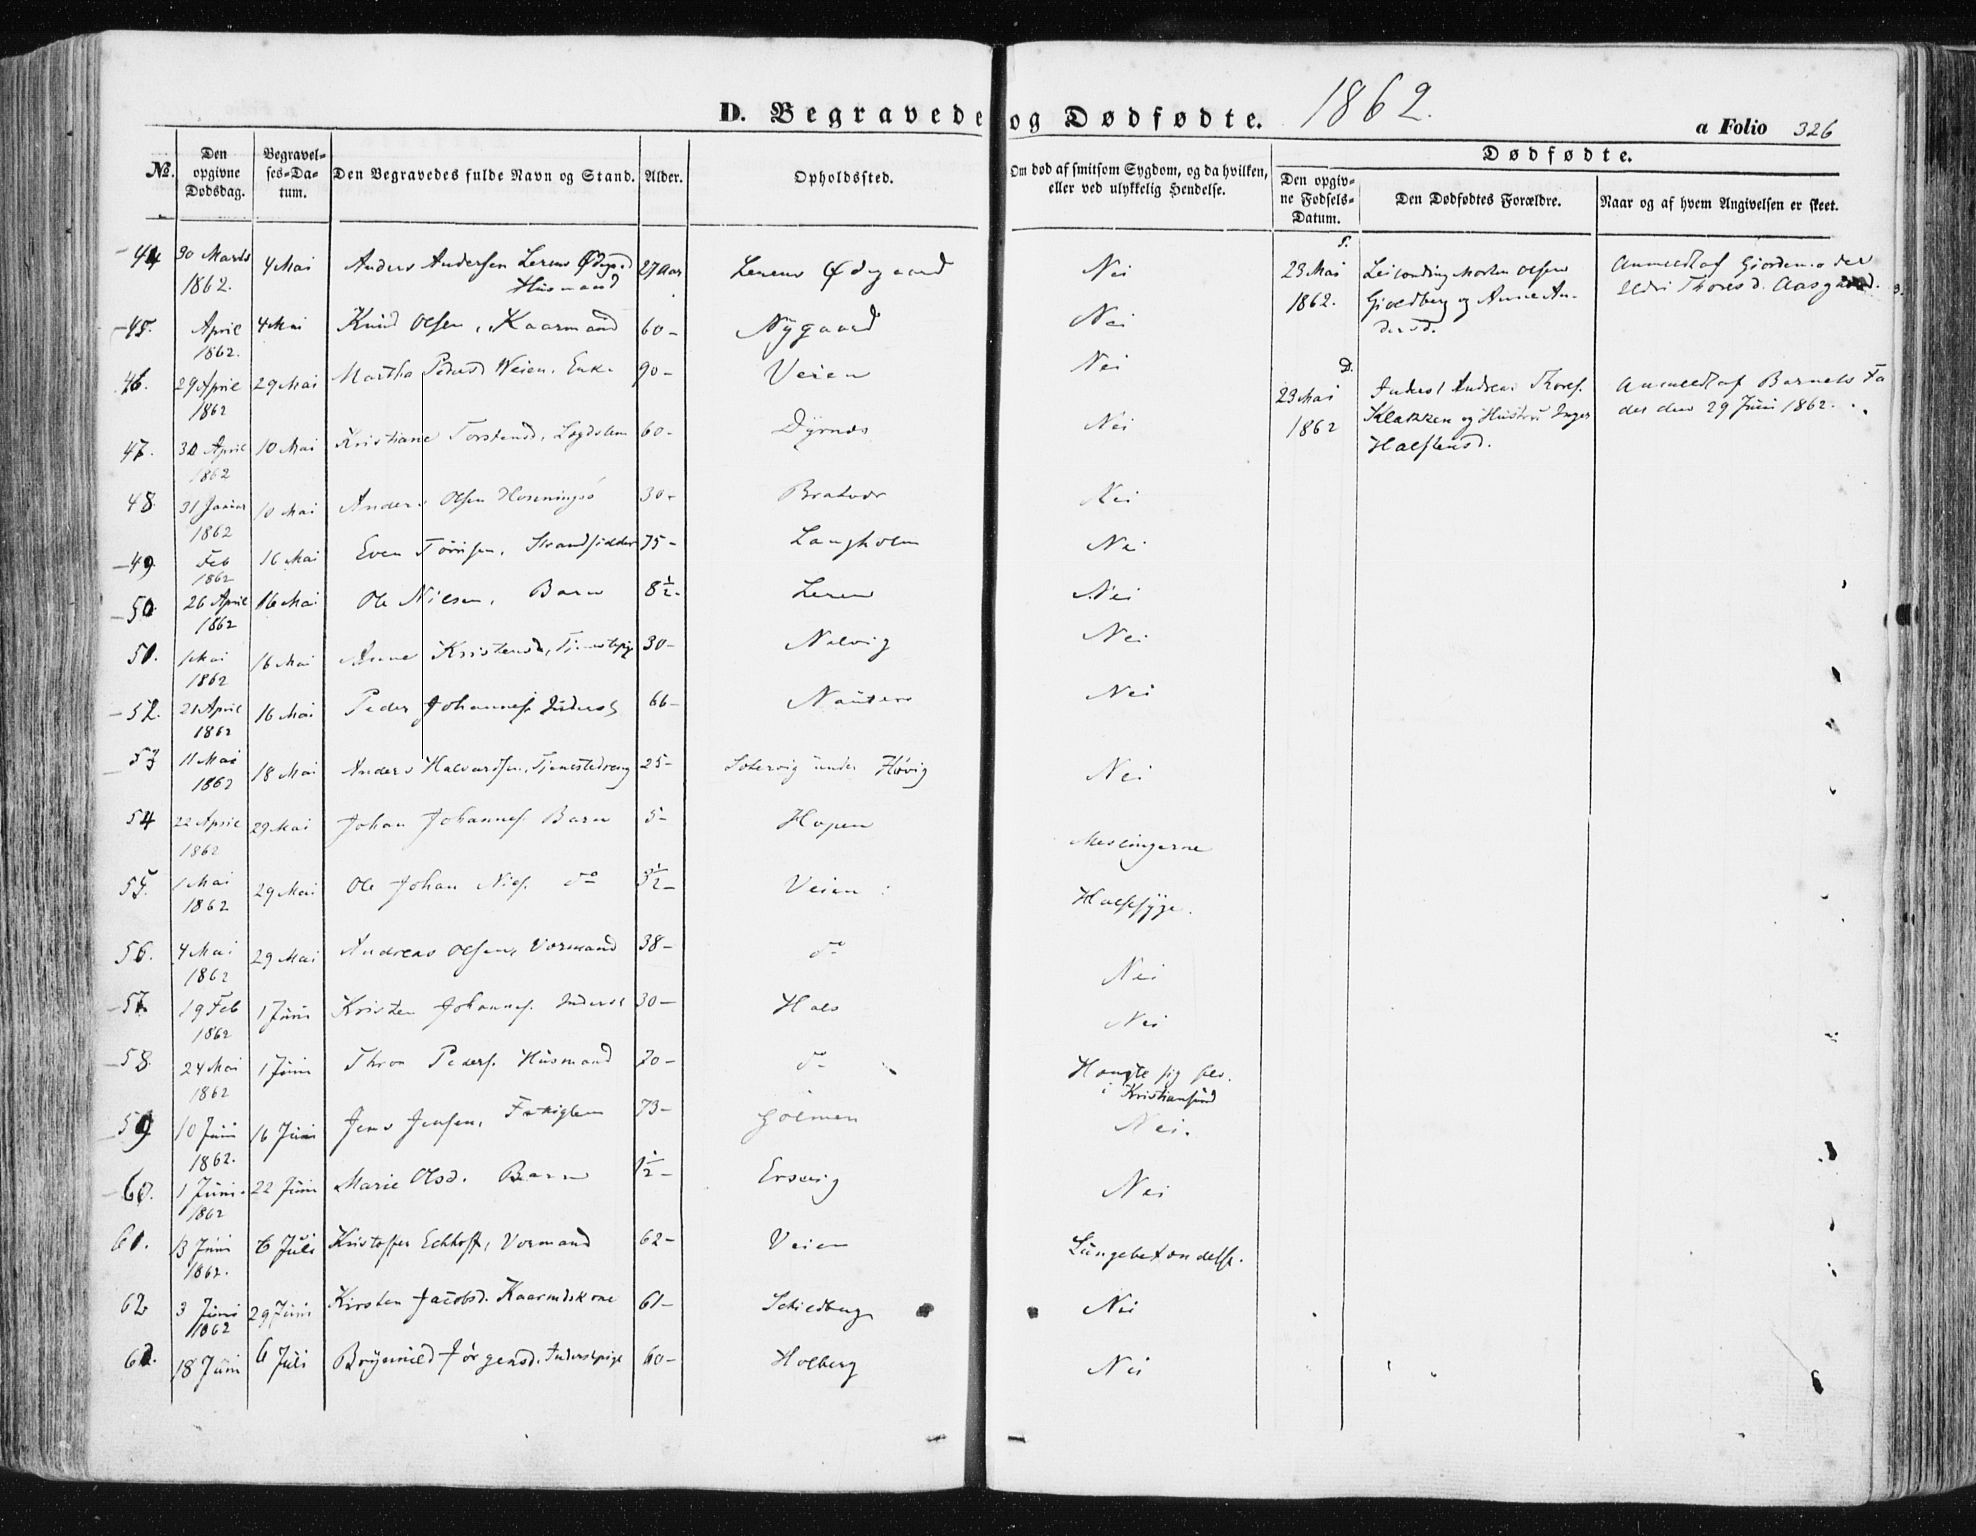 D. Begravede og Dødfødte. 1862.
a Folio 326
No.
Den opgivne Dødsdag.
Begravelses-Datum.
Den Begravedes fulde Navn og Stand.
Alder.
Opholdssted.
Om død af smitsom Sygdom, og da hvilken, eller ved ulykkelig Hendelse.
Dødfødte.
Den opgivne Fødsels-Datum.
Den Dødfødtes Forældre.
Naar og af hvem Angivelsen er skeet.
44 30 Marts 1862. 4 Mai Anders Andersen Husmand 27 Aar Nei
45. April 1862. 4 Mai Knud Olsen, Kaarmand 60- Nygaard Nei
46. 29 April 1862 29 Mai Martha Pedersd Weien. Enk. 90- Veien Nei
47. 30 April 1862 10 Mai Kristiane Torstensd. Lægdslem 60- Dyrnæs Nei
48. 31 Januar 1862 10 Mai Anders Olsen 30- Bratvær Nei
49. Feb 1862 16 Mai Even Strandsidder 75- Langholm Nei
50. 26 April 1862 16 Mai Ole Nilsen, Barn 8½- Leren Nei
51. 1 Mai 1862 16 Mai Anne Kristensd. 30- Nalvig Nei
52. 21 April 1862 16 Mai Peder Johannes. Inderst 66- Nei
53 11 Mai 1862 18 Mai Anders Halvorsen. 25- under Høvig Nei
54 22 April 1862 29 Mai Johan Johannes. Barn 5- Hopen Meslingerne
55. 1 Mai 1862 29 Mai Ole Johan Niels. do Veien Halssyge.
56. 4 Mai 1862 29 Mai Andreas Olsen, Vormand 38- do Nei
57. 19 Feb 1862 1 Juni Kristen Johannes. Inderst 30- Hals Nei
58. 24 Mai 1862 1 Juni Thron Peders. Husmand 20- do Hængte sig selv. i Kristiansund
59 10 Juni 1862. 16 Juni Jens Jensen, Fattiglem 73- Golmen Nei.
60. 1 Juni. 1862 22 Juni Marie Olsd. Barn ½- Ersvig Nei
61. 13 Juni 1862. 6 Juli Kristoffer Eckhoff, Vormand 62- Veien Lungebetændelse.
62 3 Juni 1862 29 Juni Kirsten Jacobsd. Kaarmdskone 61- Schieldberg Nei
63. 18 Juni 6 Juli Brynnild Jørgensd. Inderstpige 60- Holberg Nei
P.
23 Mai 1862. Morten Olsen
og Anne Andersd.
Anmeldt af
D.
23 Mai 1862 Inderst Andreas Thores.
Klakken og Hustru Inger
Halstensd.
Anmeldt af Barnets Fader den 29 Juni 1862.